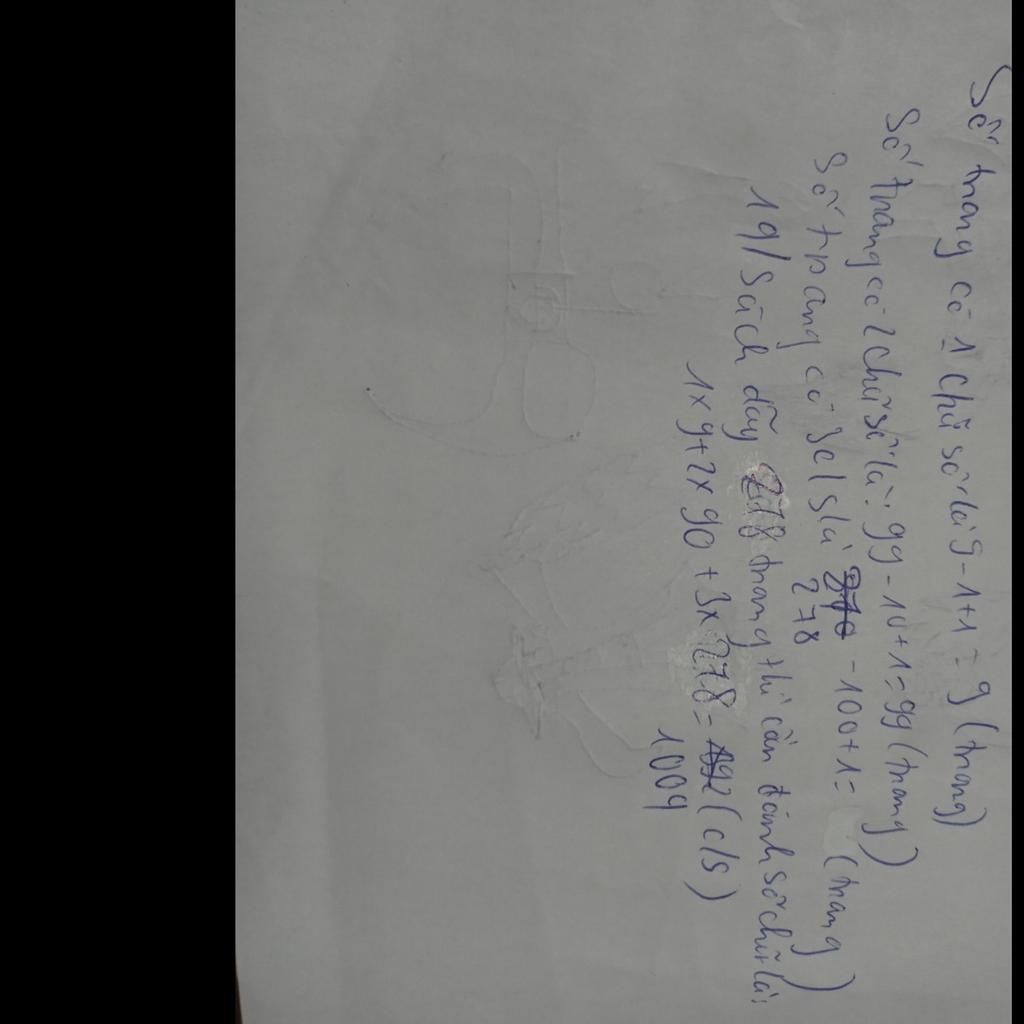 Số trang có 1 chữ số là 9-1+1=9 (trang)
Số trang có 2 chữ số là: 99-10+1=99 (trang)
Số trang có 3c/s là 278 -100+1= (trang)
19/ Sách dày 278 trang thì cần đánh số chữ là:
1x9+2x90+3x278= (c/s)
1009